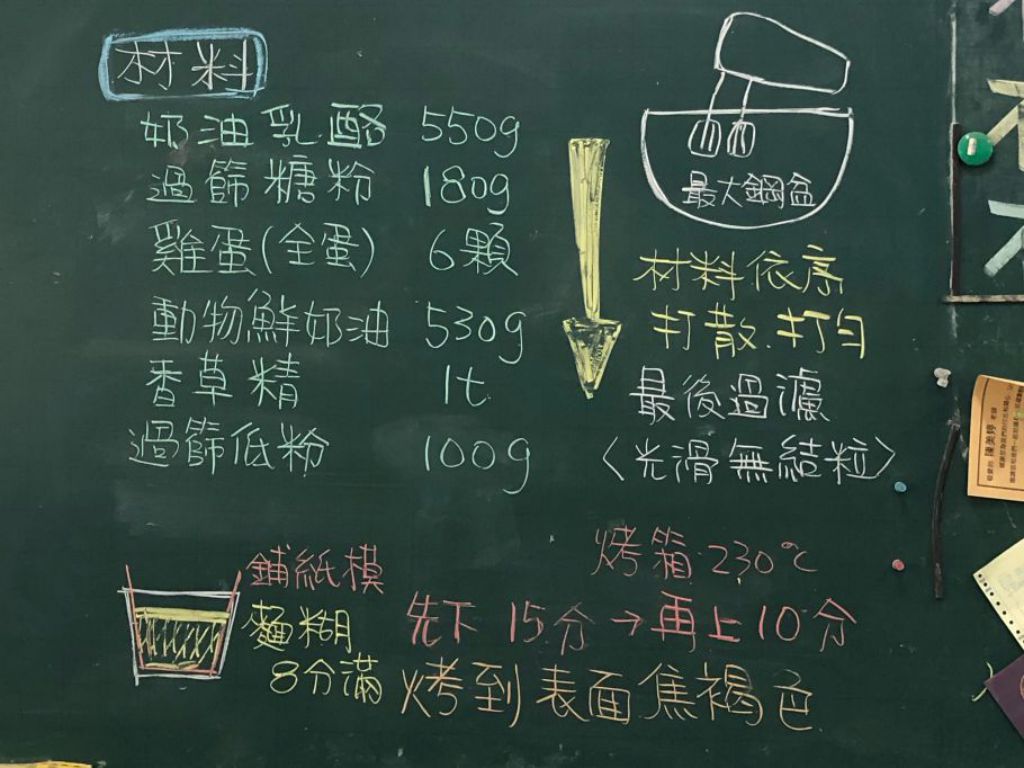 材料
奶油乳酪 550g
過篩糖粉 180g
雞蛋(全蛋) 6顆
動物鮮奶油 530g
香草精 1t
過篩低粉 100g
最大鋼盆
材料依序
打散.打勻
最後過濾
〈光滑無結粒〉
鋪紙模
麵糊
8分滿
烤箱 230℃
先下 15分→再上10分
烤到表面焦褐色
陳美婷